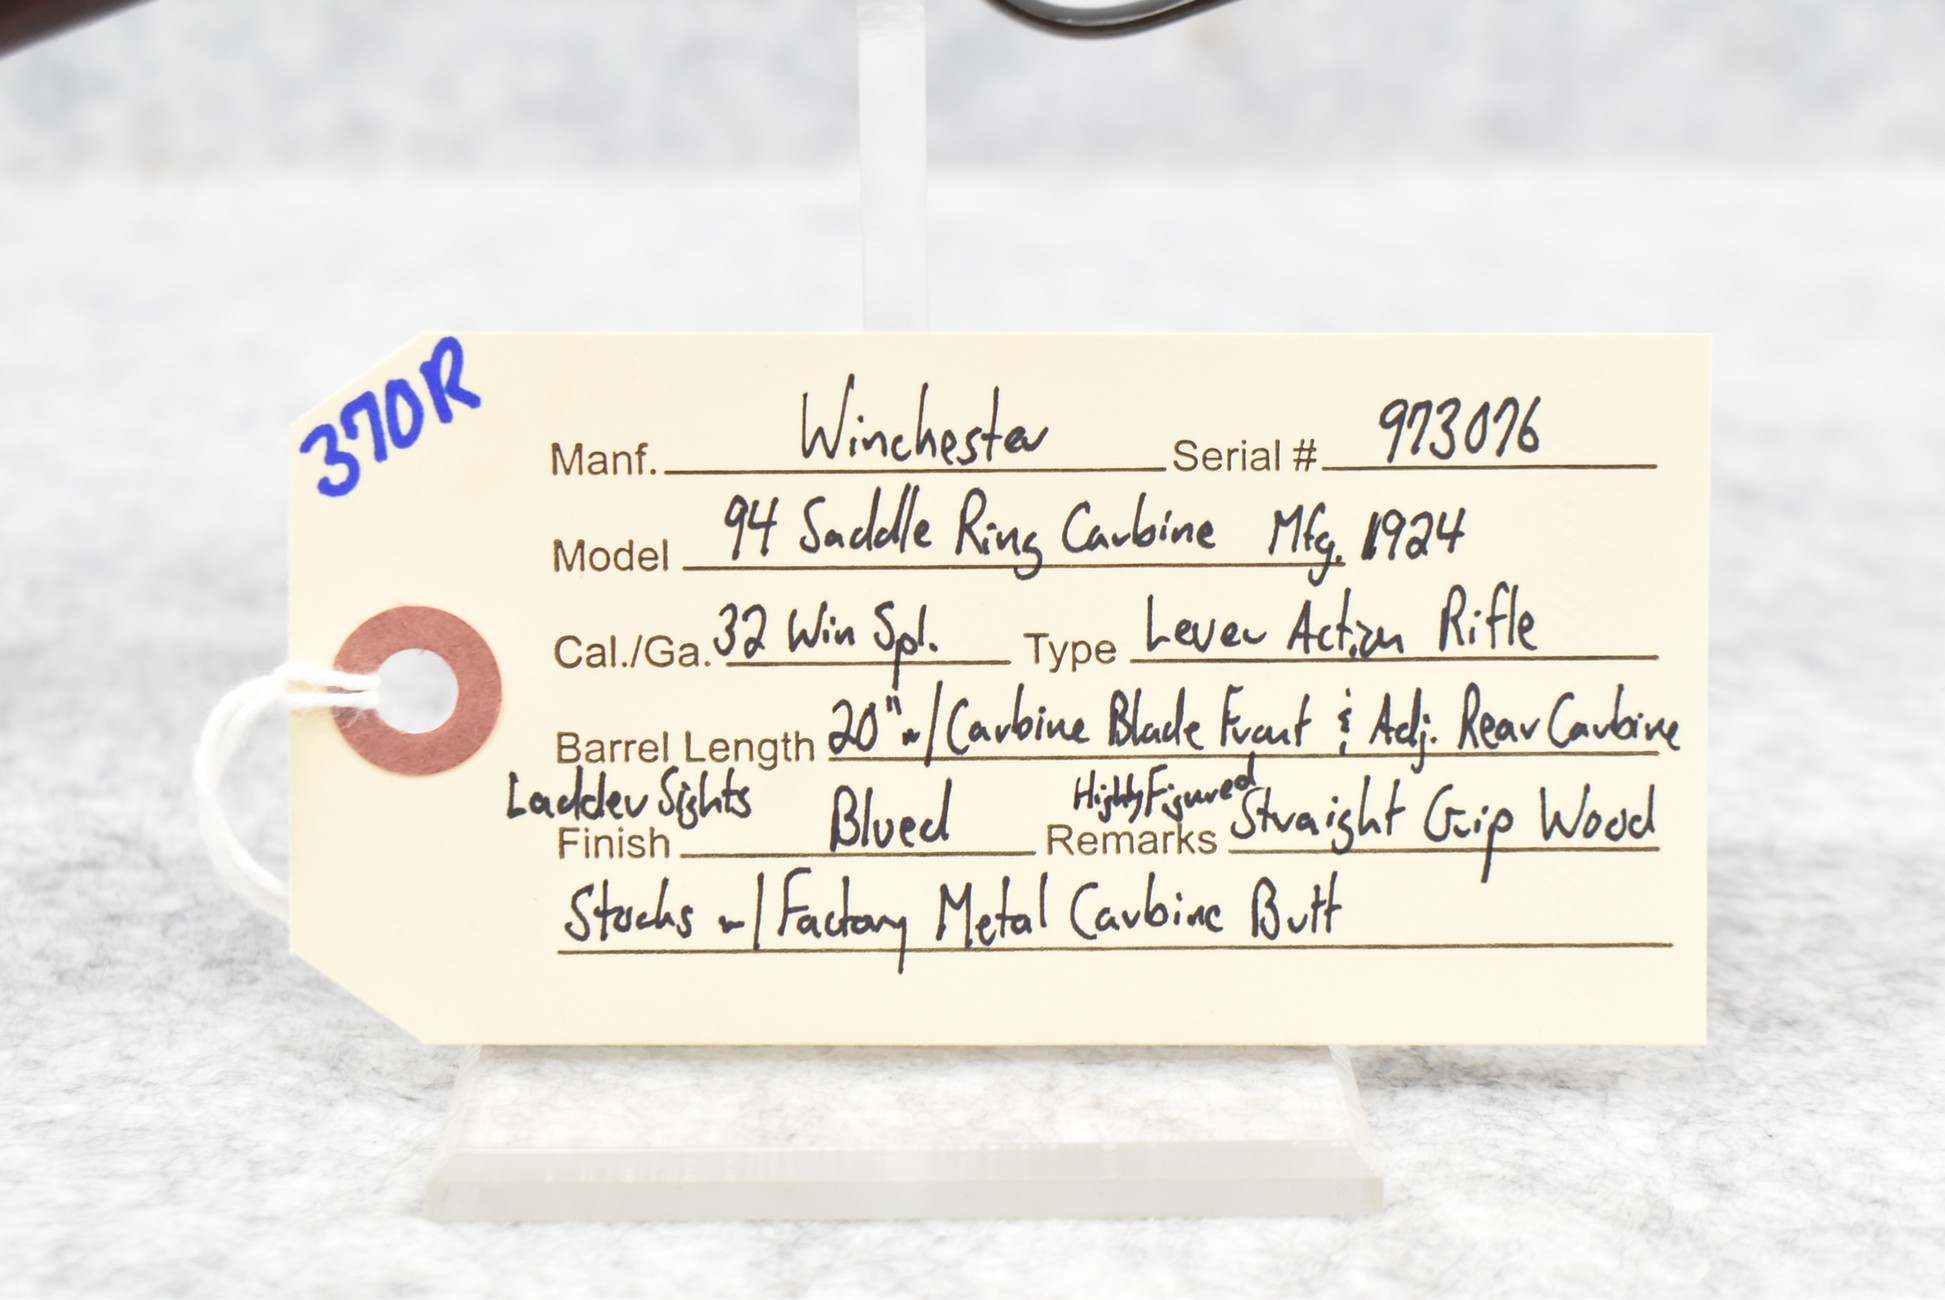 370R
Manf. Winchester Serial # 973076
Model 94 Saddle Ring Carbine Mfg. 1924
Cal./Ga. 32 Win Spl. Type Lever Action Rifle
Barrel Length 20" w/ Carbine Blade Front & Adj. Rear Carbine
Ladder Sights
Finish Blued Remarks Highly Figured Straight Grip Wood
Stocks w/ Factory Metal Carbine Butt